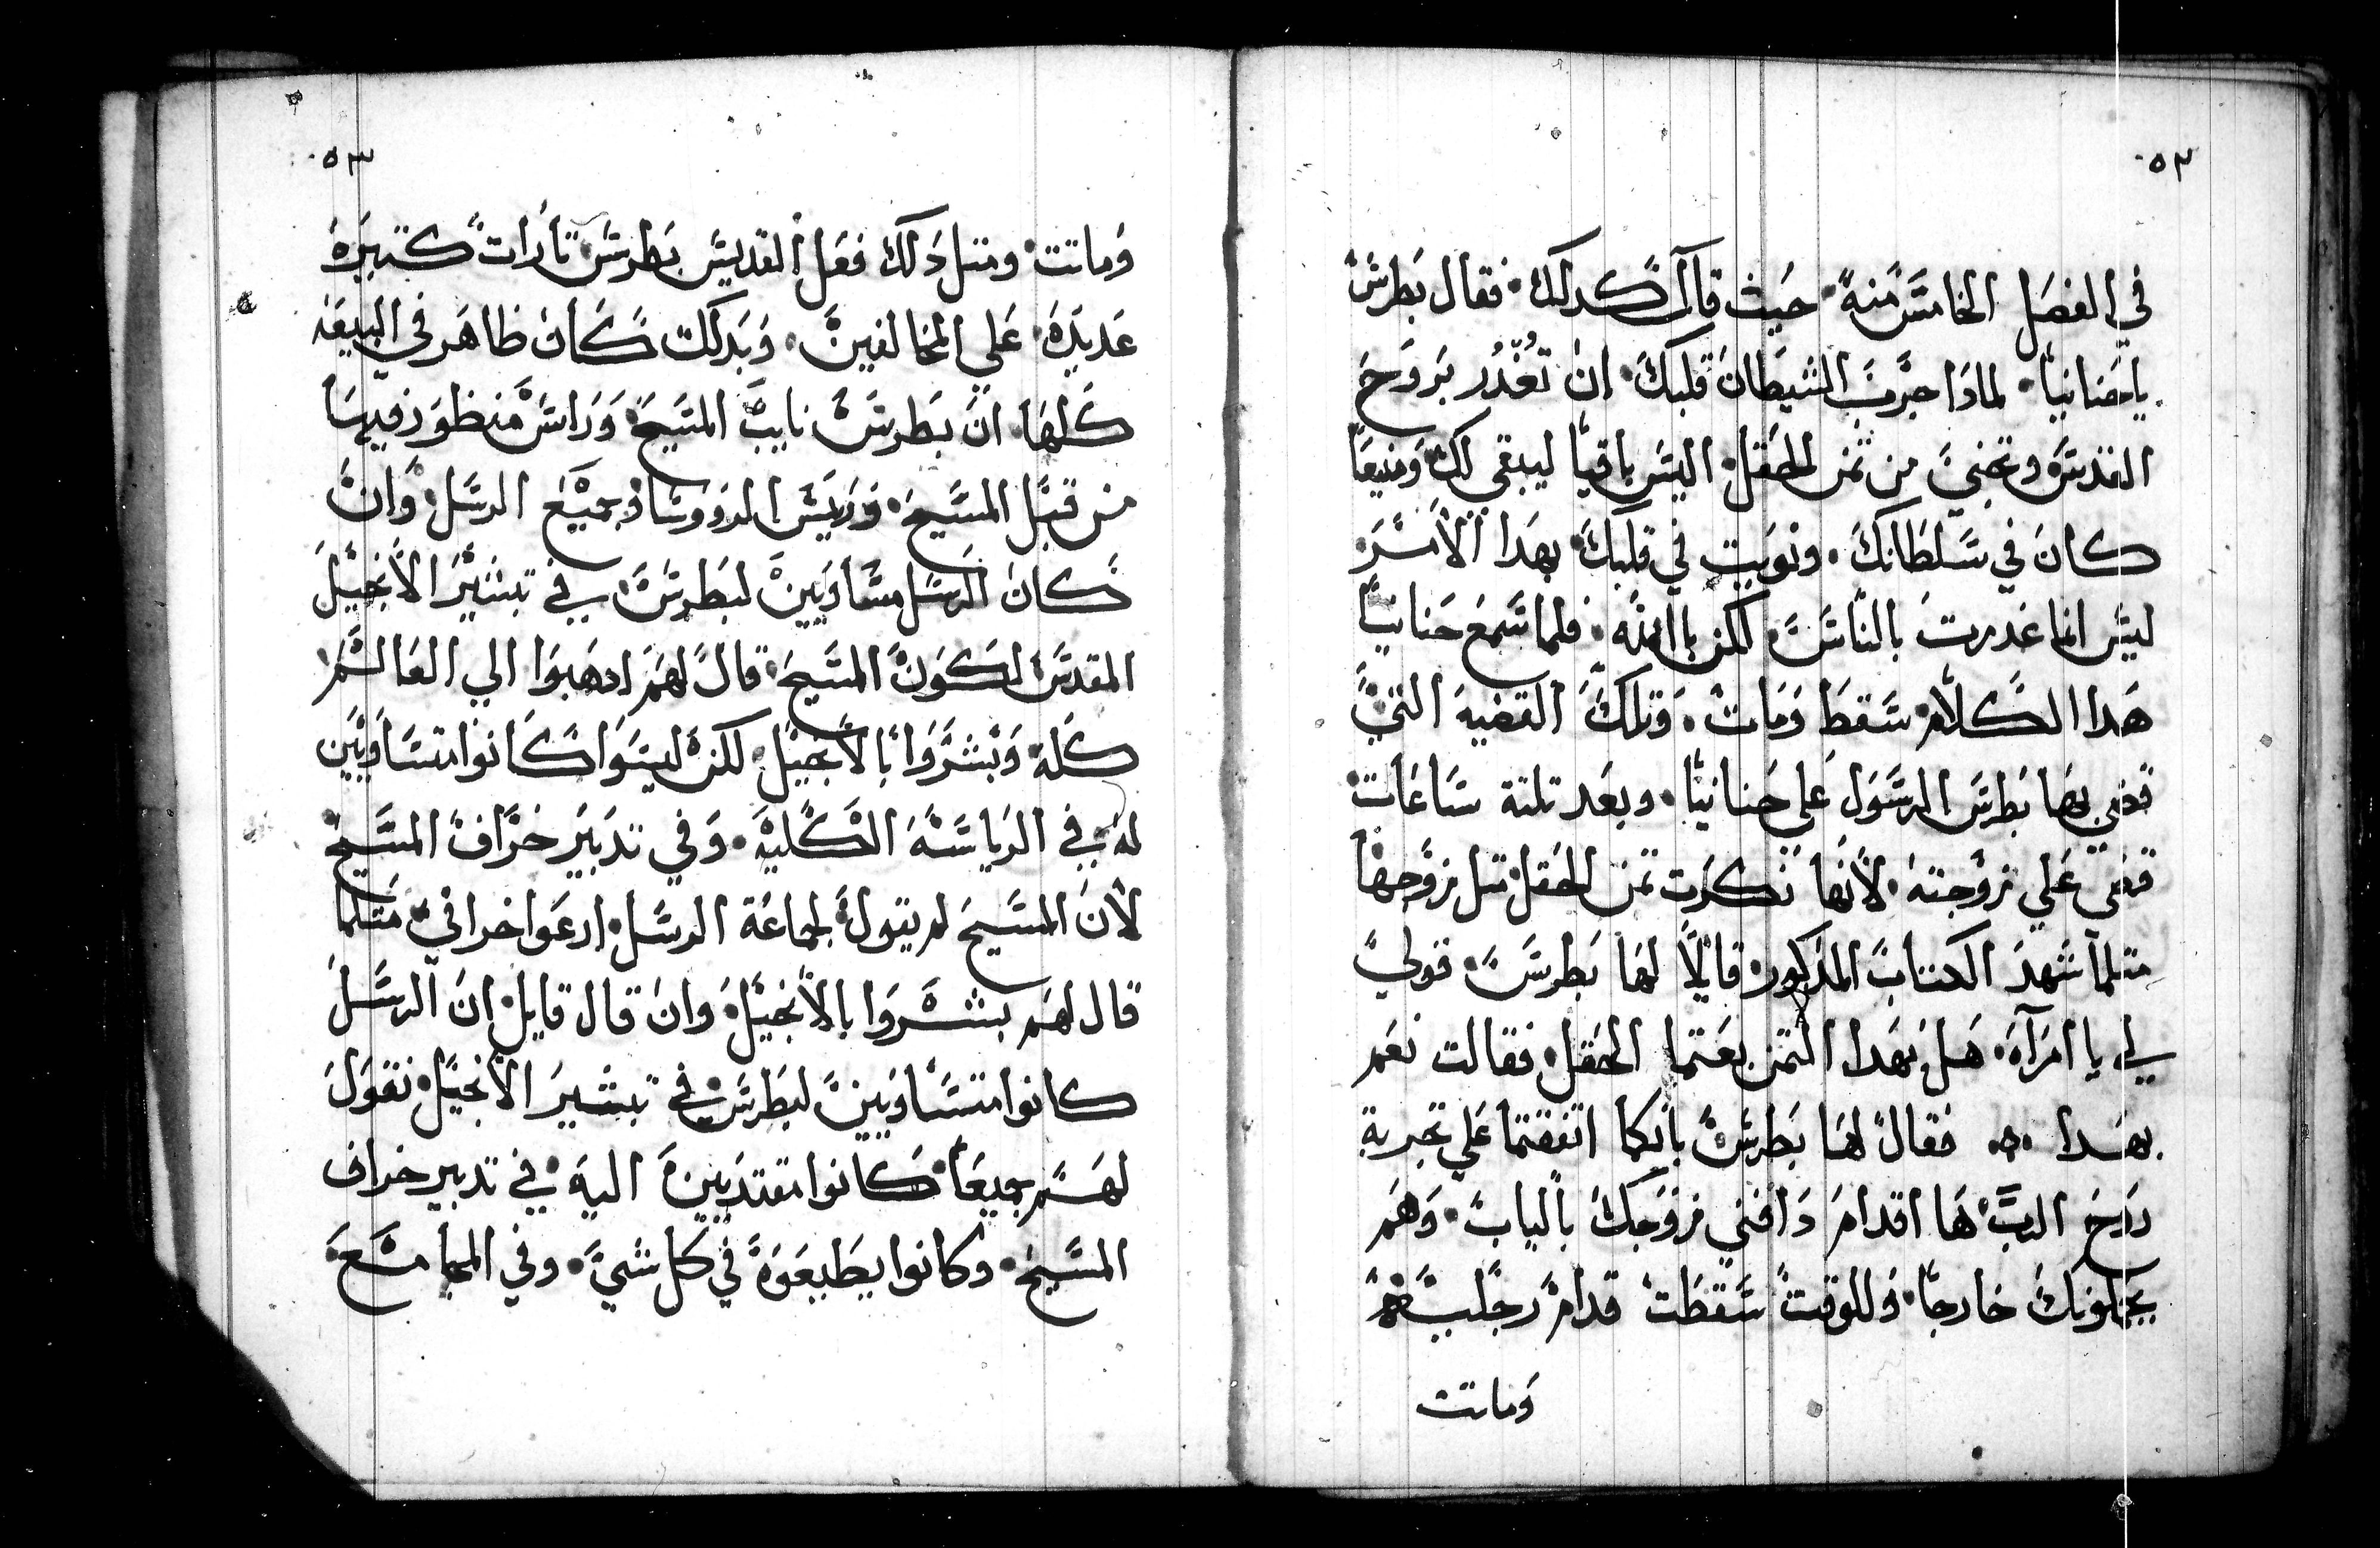 ٥٢
في الفصل الخامس منه. حيث قال كدلك. فقال بطرس
ياحنانيا. لمادا جرب الشيطان قلبك. ان تغدر بروح
القدس وتجني من تمن الحقل. اليس باقيا ليبقي لك ومنيعا
كان في سلطانك. ونويت في قلبك بهدا الأمر.
ليس انما غدرت بالناس. لكن باالله. فلما سمع حنانيا
هدا الكلام سقط ومات. وتلك القضيه التي
قضي بها بطرس الرسول علي حنانيا. وبعد تلتة ساعات
قضي علي زوجته. لأنها نكرت تمن الحقل. متل زوجها
متلما شهد الكتاب المدكور. قايلا لها بطرس. قولي
لي يا امرآه. هل بهدا التمن بعتما الحقل. فقالت نعم
بهدا. فقال لها بطرس. بانكما اتفقتما علي تجربة
روح الرب. ها اقدام دافني زوجك بالباب. وهم
يحملونك خارجا. وللوقت سقطت قدام رجليه
وماتت
٥٣
وماتت. ومتل دلك فعل القديس بطرس تارات كتيره
عديده. علي المخالفين. وبدلك كان ظاهر في البيعه
كلها. ان بطرس نايب المسيح. وراس منظور فيها
من قبل المسيح. وريس الرووسا وجميع الرسل. وان
كان الرسل متساويين لبطرس. في تبشير الأنجيل
المقدس لكون المسيح. قال لهم ادهبوا الي العالم
كله. وبشروا بالأنجيل. لكن ليسوا كانوا متساويين
له. في الرياسه الكليه. وفي تدبير خراف المسيح
لأن المسيح لم يقول لجماعة الرسل. ارعوا خرافي. متلما
قال لهم بشروا بالأنجيل. وان قال قايل. ان الرسل
كانوا متساويين لبطرس في تبشير الأنجيل. نقول
لهم جميعا. كانوا مقتديين اليه. في تدبير خراف
المسيح. وكانوا يطيعوه في كل شي. وفي المجامع.